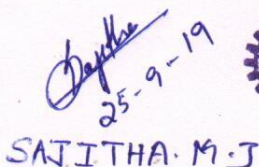 Sajitha
25-9-19
SAJITHA. M. J